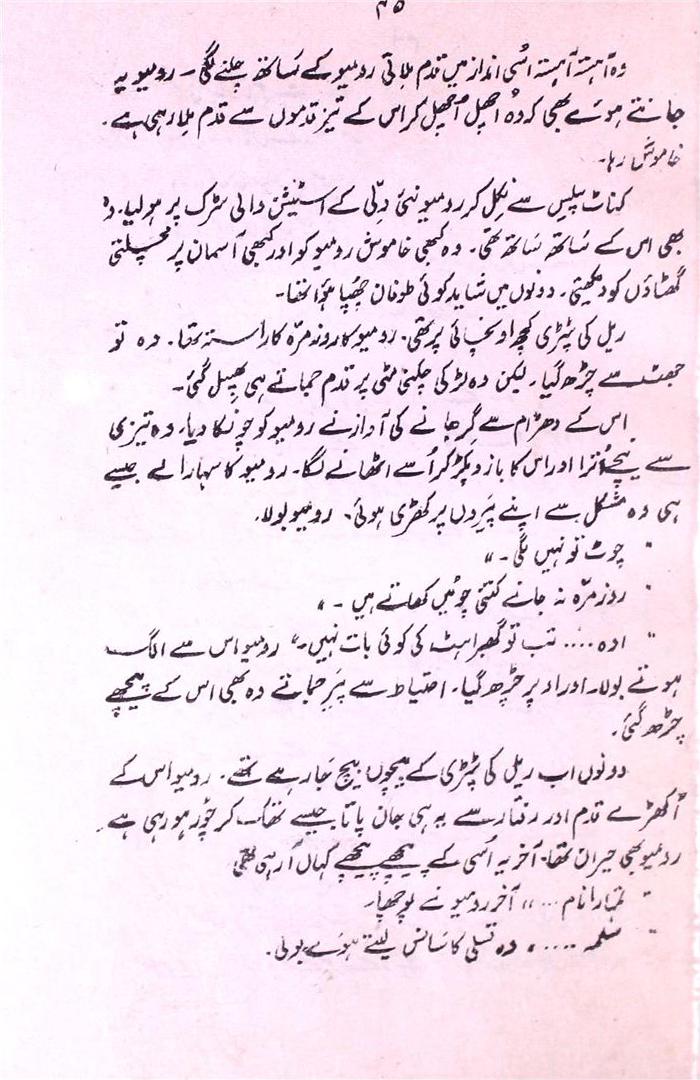 ۴۵
وہ آہستہ آہستہ اسُی انداز میں قدم ملاتی رومیو کے ساتھ چلنے لگی ۔ رومیو یہ
جانتے ہوئے بھی کہ وہ اُچھل اُچھل کر اس کے تیز قدموں سے قدم ملا رہی ہے ۔
خاموش رہا ۔
کناٹ پلیس سے نکل کر رومیو نئی دہلی کے اسٹیشن والی سڑک پر ہو لیا ۔ وہ
بھی اس کے ساتھ ساتھ تھی ۔ وہ کبھی خاموش رومیو کو اور کبھی آسمان پر مچلتی
گھٹاؤں کو دیکھتی ۔ دونوں میں شاید کوئی طوفان چھُپا ہوا تھا ۔
ریل کی پٹڑی کچھ اونچائی پر تھی ۔ رومیو کا روزمرّہ کا راستہ تھا ۔ وہ تو
جھٹ سے چڑھ گیا ۔ لیکن وہ لڑکی چکنی مٹی پر قدم جماتے ہی پھسِل گئی ۔
اس کے دھڑام سے گر جانے کی آواز نے رومیو کو چونکا دیا ۔ وہ تیزی
سے نیچے اُترا اور اس کا بازو پکڑ کر اُسے اٹھانے لگا ۔ رومیو کا سہارا لے جیسے
ہی وہ مشکل سے اپنے پیَروں پر کھڑی ہوئی ۔ رومیو بولا ۔
" چوٹ تو نہیں لگی ۔ "
" روز مرّہ نہ جانے کتنی چوٹیں کھاتے ہیں ۔ "
" اوہ .... تب تو گھبراہٹ کی کوئی بات نہیں ۔" رومیو اس سے الگ
ہوتے بولا ۔ اور اوپر چڑھ گیا ۔ احتیاط سے پیَر جماتے وہ بھی اس کے پیچھے
چڑھ گئی ۔
دونوں اب ریل کی پٹڑی کے بیچوں بیچ جا رہے تھے ۔ رومیو اس کے
اُکھڑے قدم اور رفتار سے یہ ہی جان پاتا جیسے تھک کر چُور ہو رہی ہے ۔
رومیو بھی حیران تھا ۔ آخر یہ اُسی کے پیچھے پیچھے کہاں آ رہی تھی
" تمہارا نام ... " آخر رومیو نے پوچھا ۔
" سلمہ .... " وہ تسلی کا سانس لیتے ہوئے بولی ۔